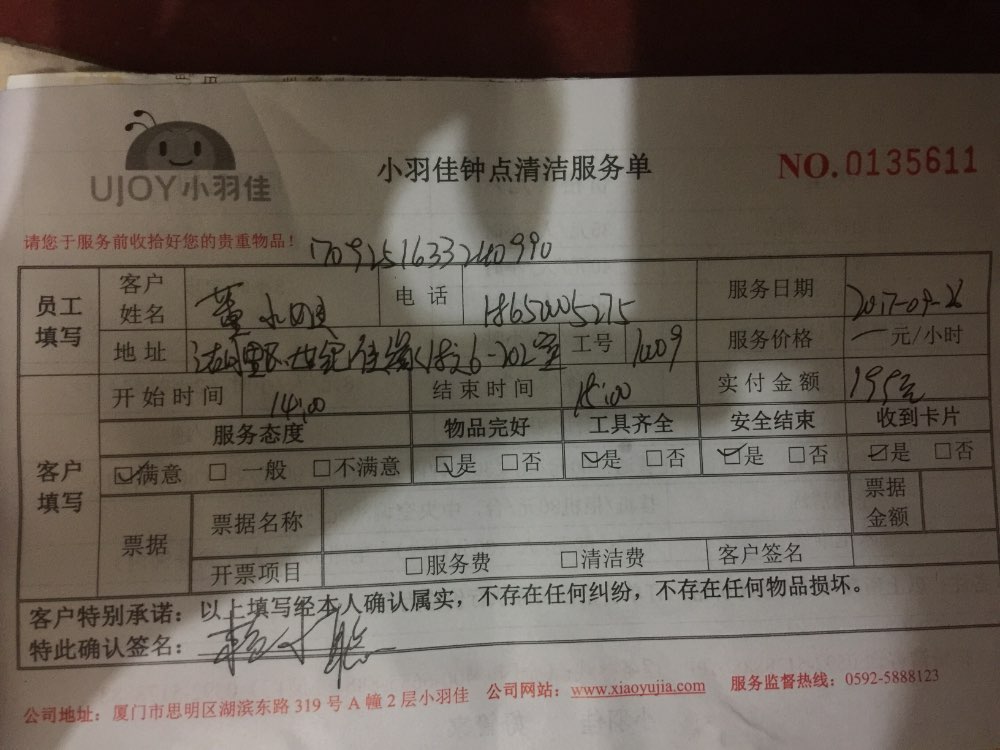 UJOY小羽佳
小羽佳钟点清洁服务单
NO.0135611
请您于服务前收拾好您的贵重物品！
1709251633240990
员工填写 客户姓名 董 电话 服务日期 2017-09-26
地址 世纪佳缘 6-202室 工号 1009 服务价格 一元/小时
开始时间 14:00 结束时间 18:00 实付金额 195元
客户填写 服务态度 物品完好 工具齐全 安全结束 收到卡片
☑满意 □一般 □不满意 ☑是 □否 ☑是 □否 ☑是 □否 ☑是 □否
票据 票据名称 票据金额
开票项目 □服务费 □清洁费 客户签名
客户特别承诺：以上填写经本人确认属实，不存在任何纠纷，不存在任何物品损坏。
特此确认签名：
公司地址：厦门市思明区湖滨东路319号A幢2层小羽佳 公司网站：www.xiaoyujia.com 服务监督热线：0592-5888123